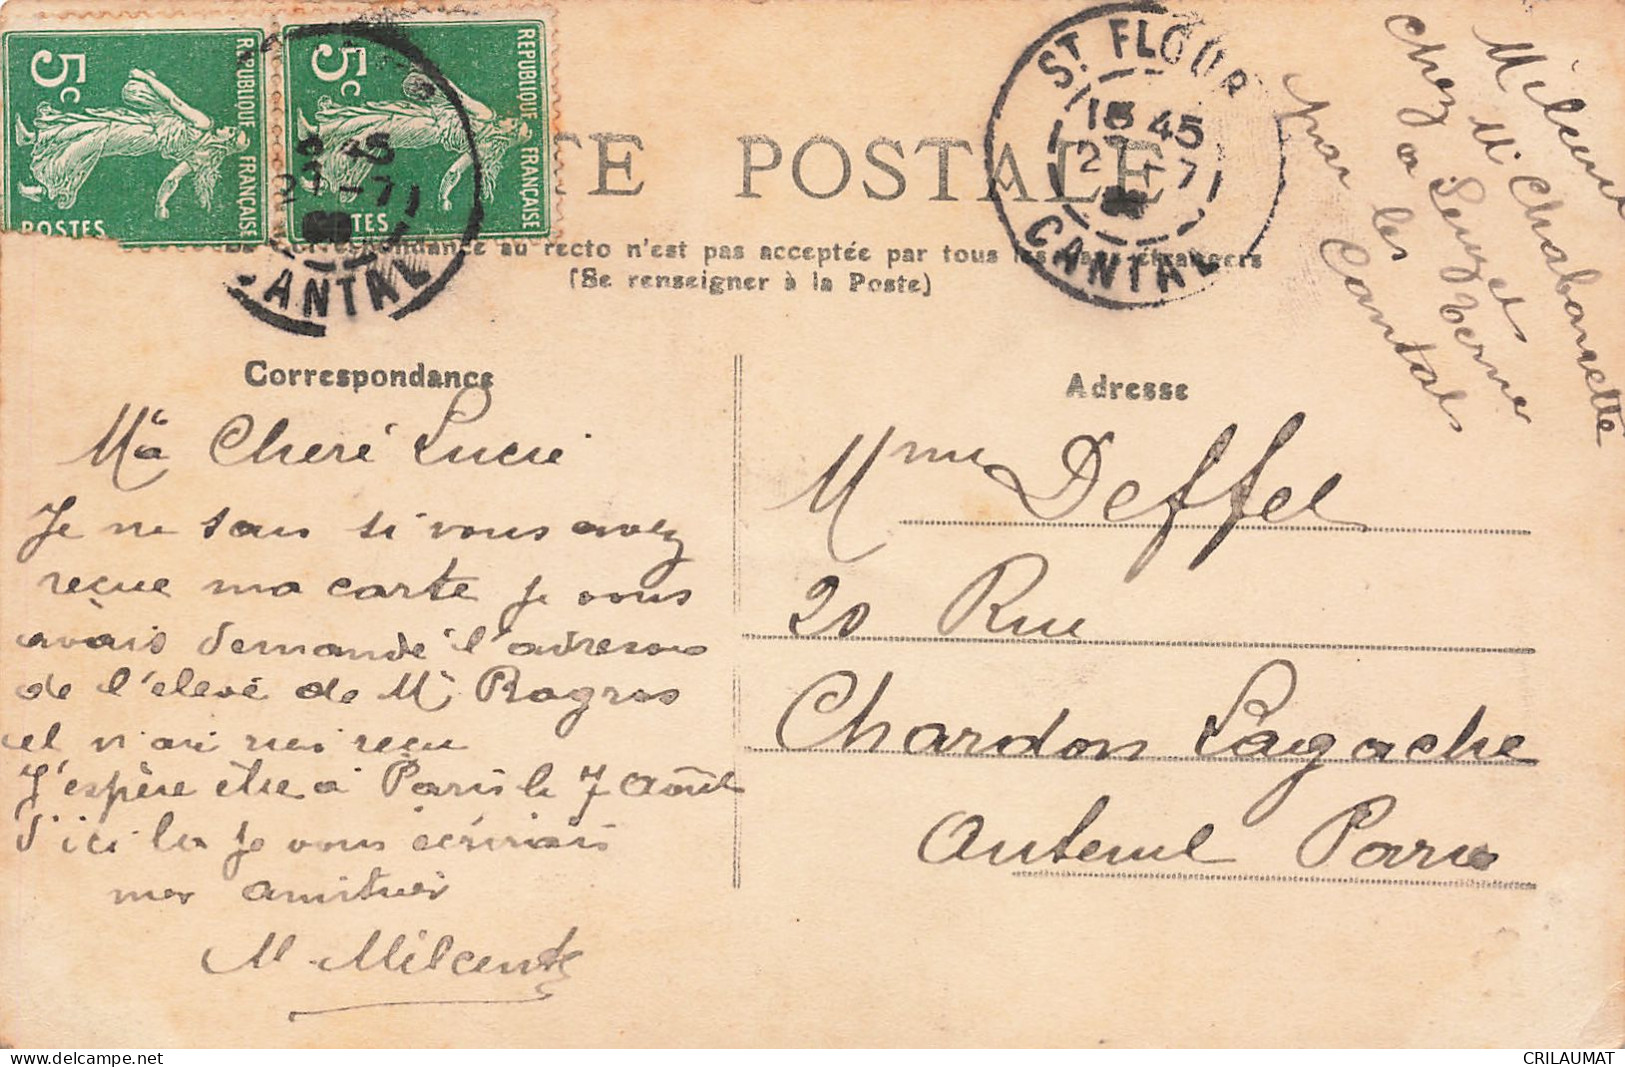 5c
REPUBLIQUE FRANÇAISE
POSTES
5c
REPUBLIQUE FRANÇAISE
TES
45
27 -7
CANTAL
TE POSTALE
ST FLOUR
18 45
27 -7
CANTAL
La Correspondance au recto n'est pas acceptée par tous les pays étrangers
(Se renseigner à la Poste)
chez
par les
Cantal
Correspondance
Ma Cheré Lucie
Je ne sais si vous avez
reçue ma carte je vous
avais demandé l'adresse
de l'elevé de Mr Ragros
et n'ai rien reçu
J'espère être a Paris le 7 Août
d'ici la je vous écrirais
mes amitiés
M. Milcent
Adresse
Mme Deffel
20 Rue
Chardon Lagache
Auteuil Paris
CRILAUMAT